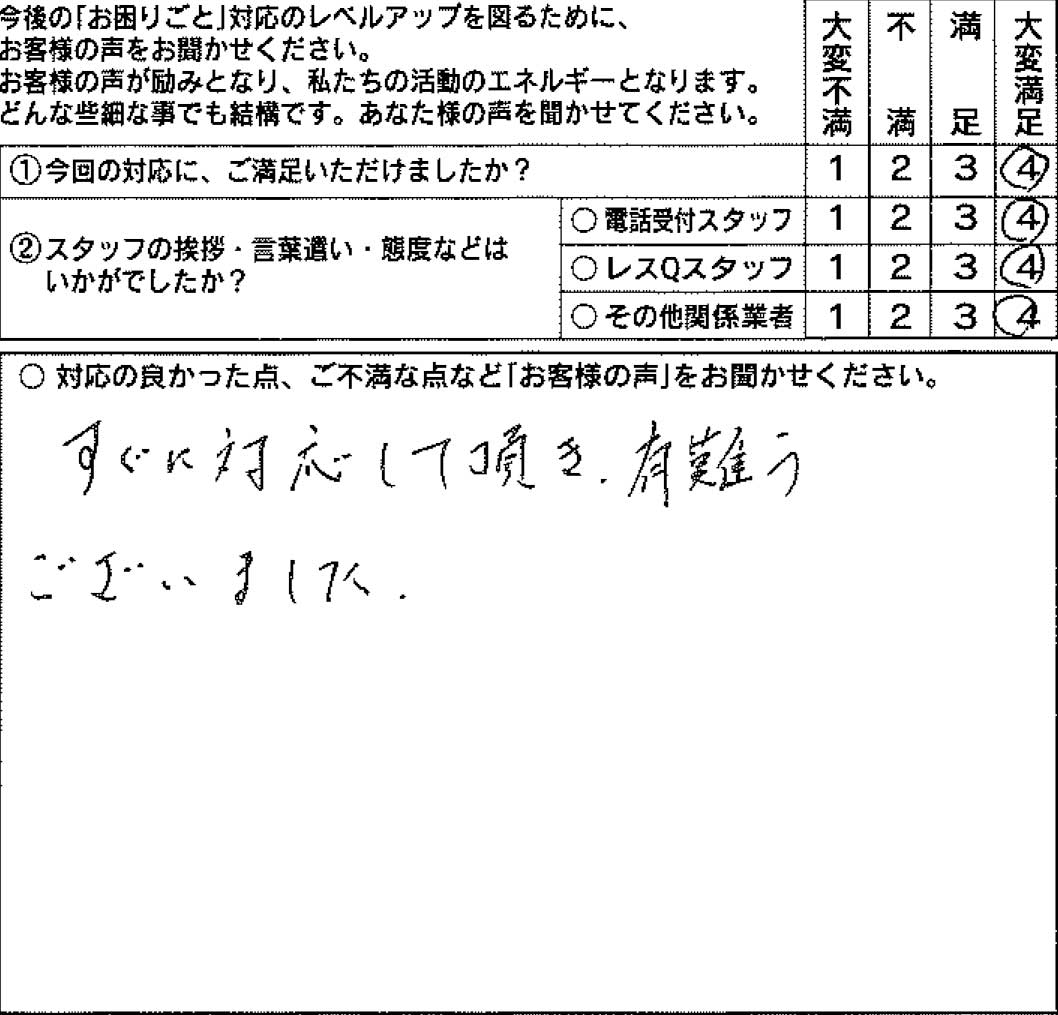 今後の「お困りごと」対応のレベルアップを図るために、
お客様の声をお聞かせください。
お客様の声が励みとなり、私たちの活動のエネルギーとなります。
どんな些細な事でも結構です。あなた様の声を聞かせてください。
大変不満 不満 満足 大変満足
①今回の対応に、ご満足いただけましたか？ 1 2 3 4
②スタッフの挨拶・言葉遣い・態度などは
いかがでしたか？
○電話受付スタッフ 1 2 3 4
○レスQスタッフ 1 2 3 4
○その他関係業者 1 2 3 4
○ 対応の良かった点、ご不満な点など「お客様の声」をお聞かせください。
すぐに対応して頂き、有難う
ございました.